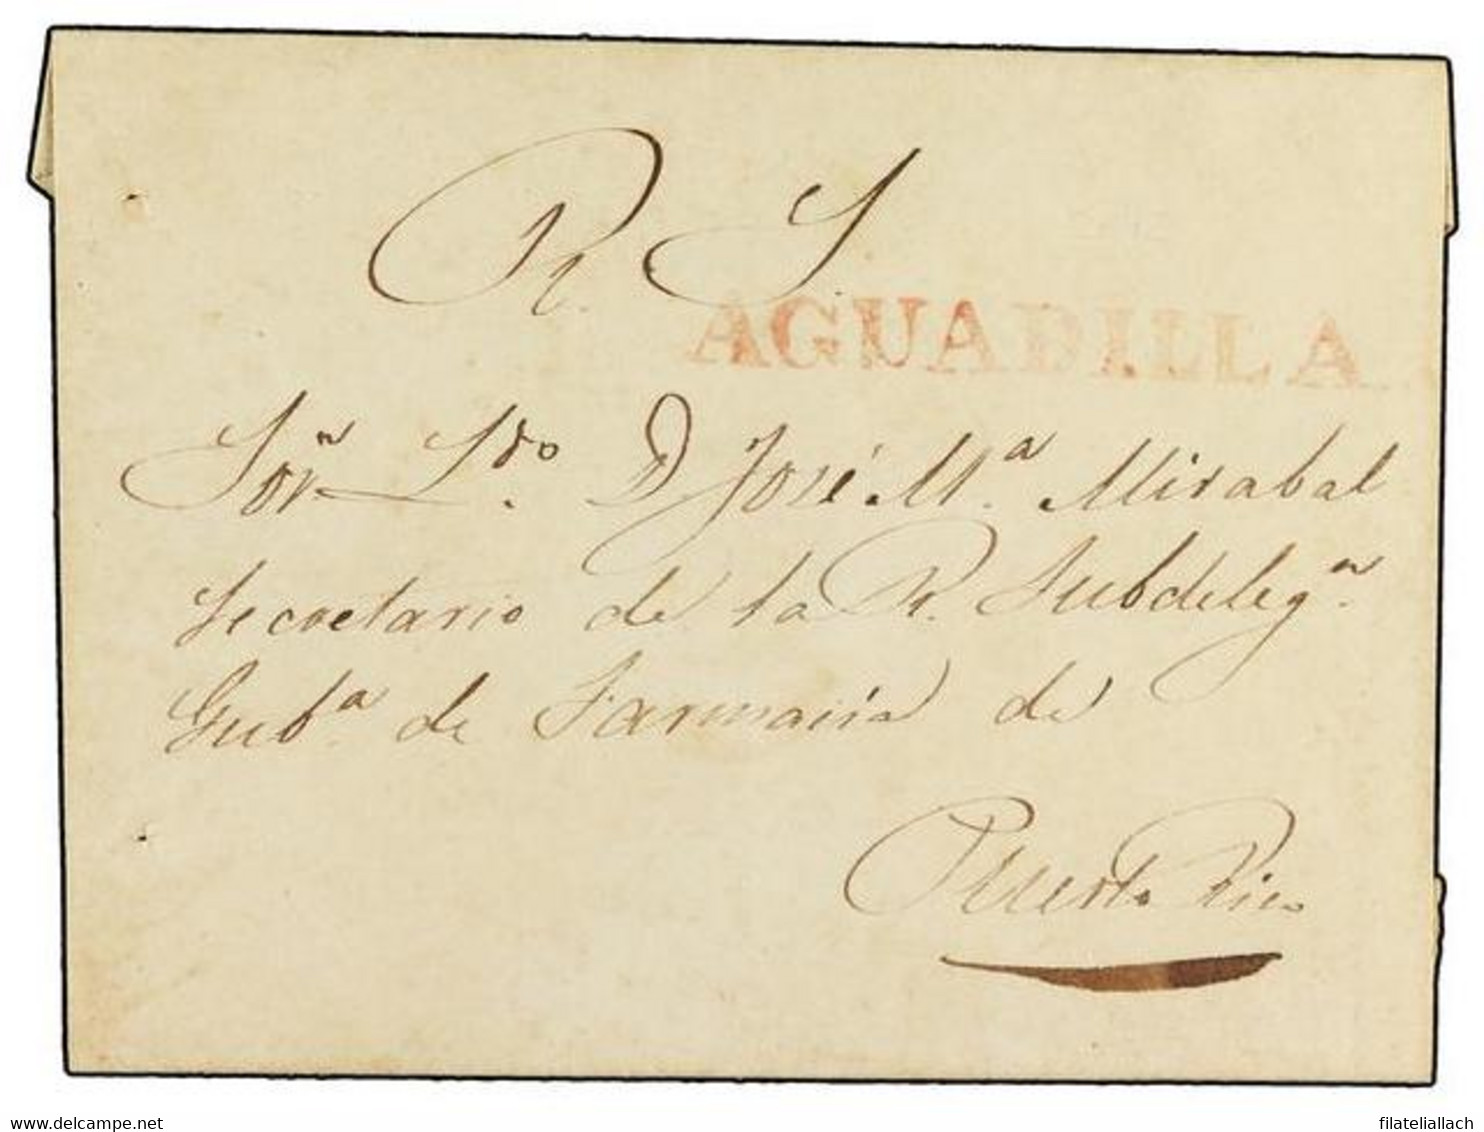 R. S.
AGUADILLA
Sor.n Ldo. D José Ma. Mirabal
Secretario de la R. Subdelegn.
Guba. de Farmacia de
Puerto Rico
filatelialach